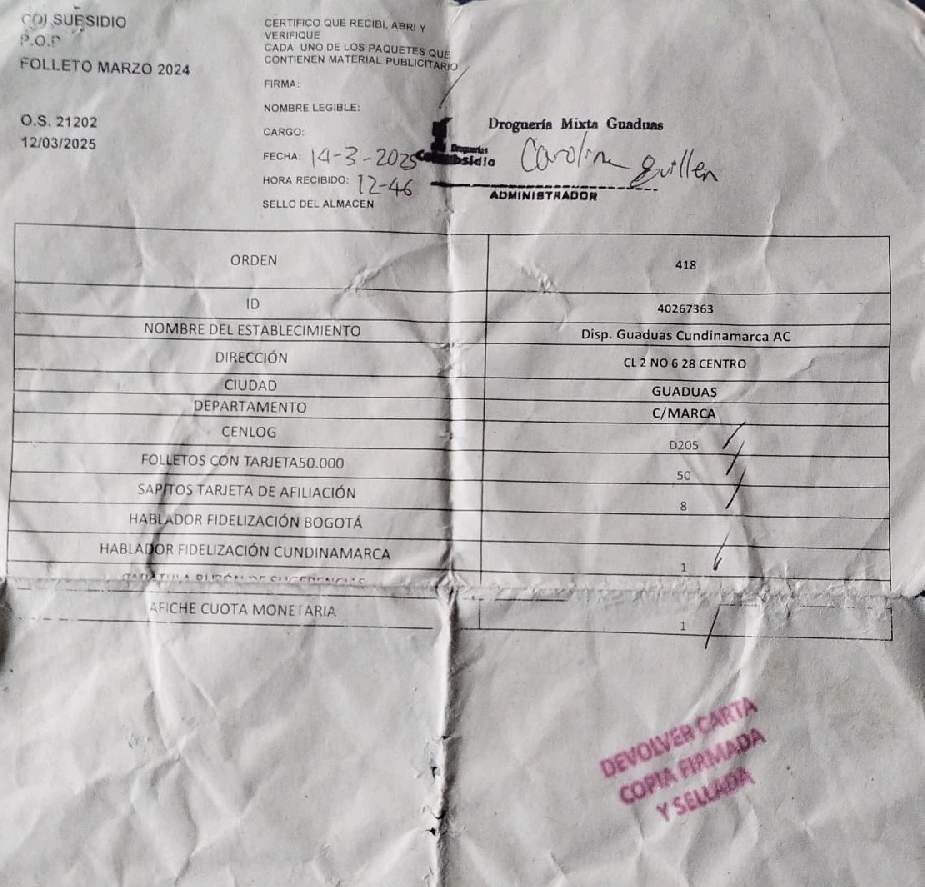 COLSUBSIDIO
P.O.P
FOLLETO MARZO 2024
O.S. 21202
12/03/2025
CERTIFICO QUE RECIBI, ABRI Y
VERIFIQUE
CADA UNO DE LOS PAQUETES QUE
CONTIENEN MATERIAL PUBLICITARIO
FIRMA:
NOMBRE LEGIBLE:
CARGO:
FECHA: 14-3-2025
HORA RECIBIDO: 12-46
SELLO DEL ALMACEN
Droguería Mixta Guaduas
Droguerías
Colsubsidio
Carolina Guillen
ADMINISTRADOR
ORDEN 418
ID 40267363
NOMBRE DEL ESTABLECIMIENTO Disp. Guaduas Cundinamarca AC
DIRECCIÓN CL 2 NO 6 28 CENTRO
CIUDAD GUADUAS
DEPARTAMENTO C/MARCA
CENLOG D205
FOLLETOS CON TARJETA50.000 50
SAPITOS TARJETA DE AFILIACIÓN 8
HABLADOR FIDELIZACIÓN BOGOTÁ
HABLADOR FIDELIZACIÓN CUNDINAMARCA 1
BUZÓN DE SUGERENCIAS
AFICHE CUOTA MONETARIA 1
DEVOLVER CARTA
COPIA FIRMADA
Y SELLADA